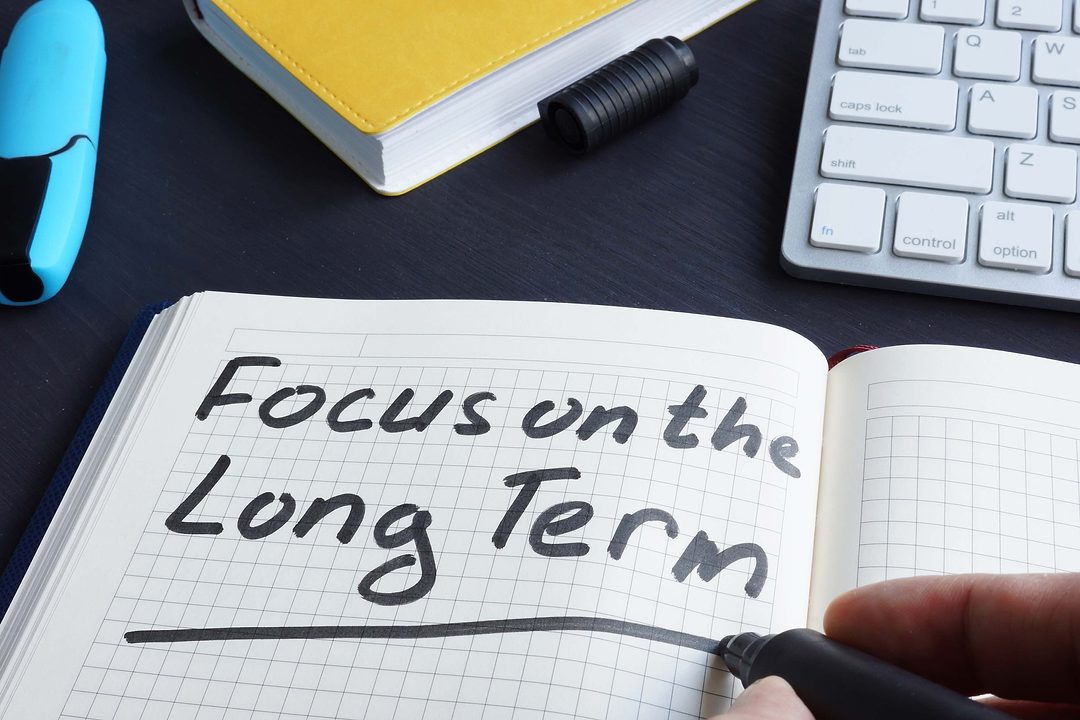 1 2
tab Q W
caps lock A S
shift Z
fn control alt option
Focus on the
Long Term